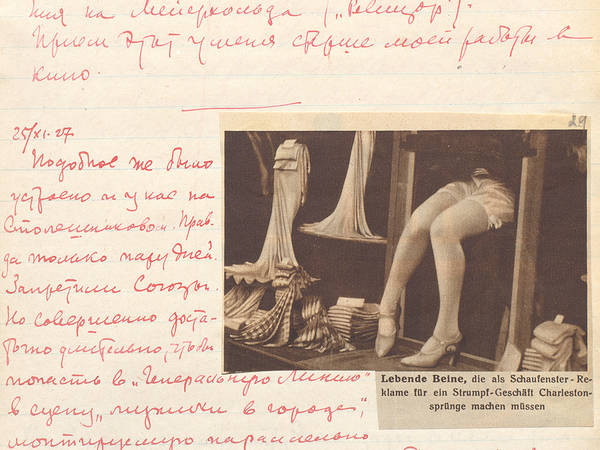 ния на Мейерхольда („Ревизор“).
Прием этот у меня старше моей работы в
кино.
25/XI-27
29
Подобное же было
устроено и у нас на
Столешниковом. Прав-
да только пару дней.
Запретили Союзы.
Но совершенно доста-
точно длительно, чтобы
попасть в „Генеральную Линию“
в сцену „мужики в городе“,
монтируемую параллельно
Lebende Beine, die als Schaufenster-Re-
klame für ein Strumpf-Geschäft Charleston-
sprünge machen müssen